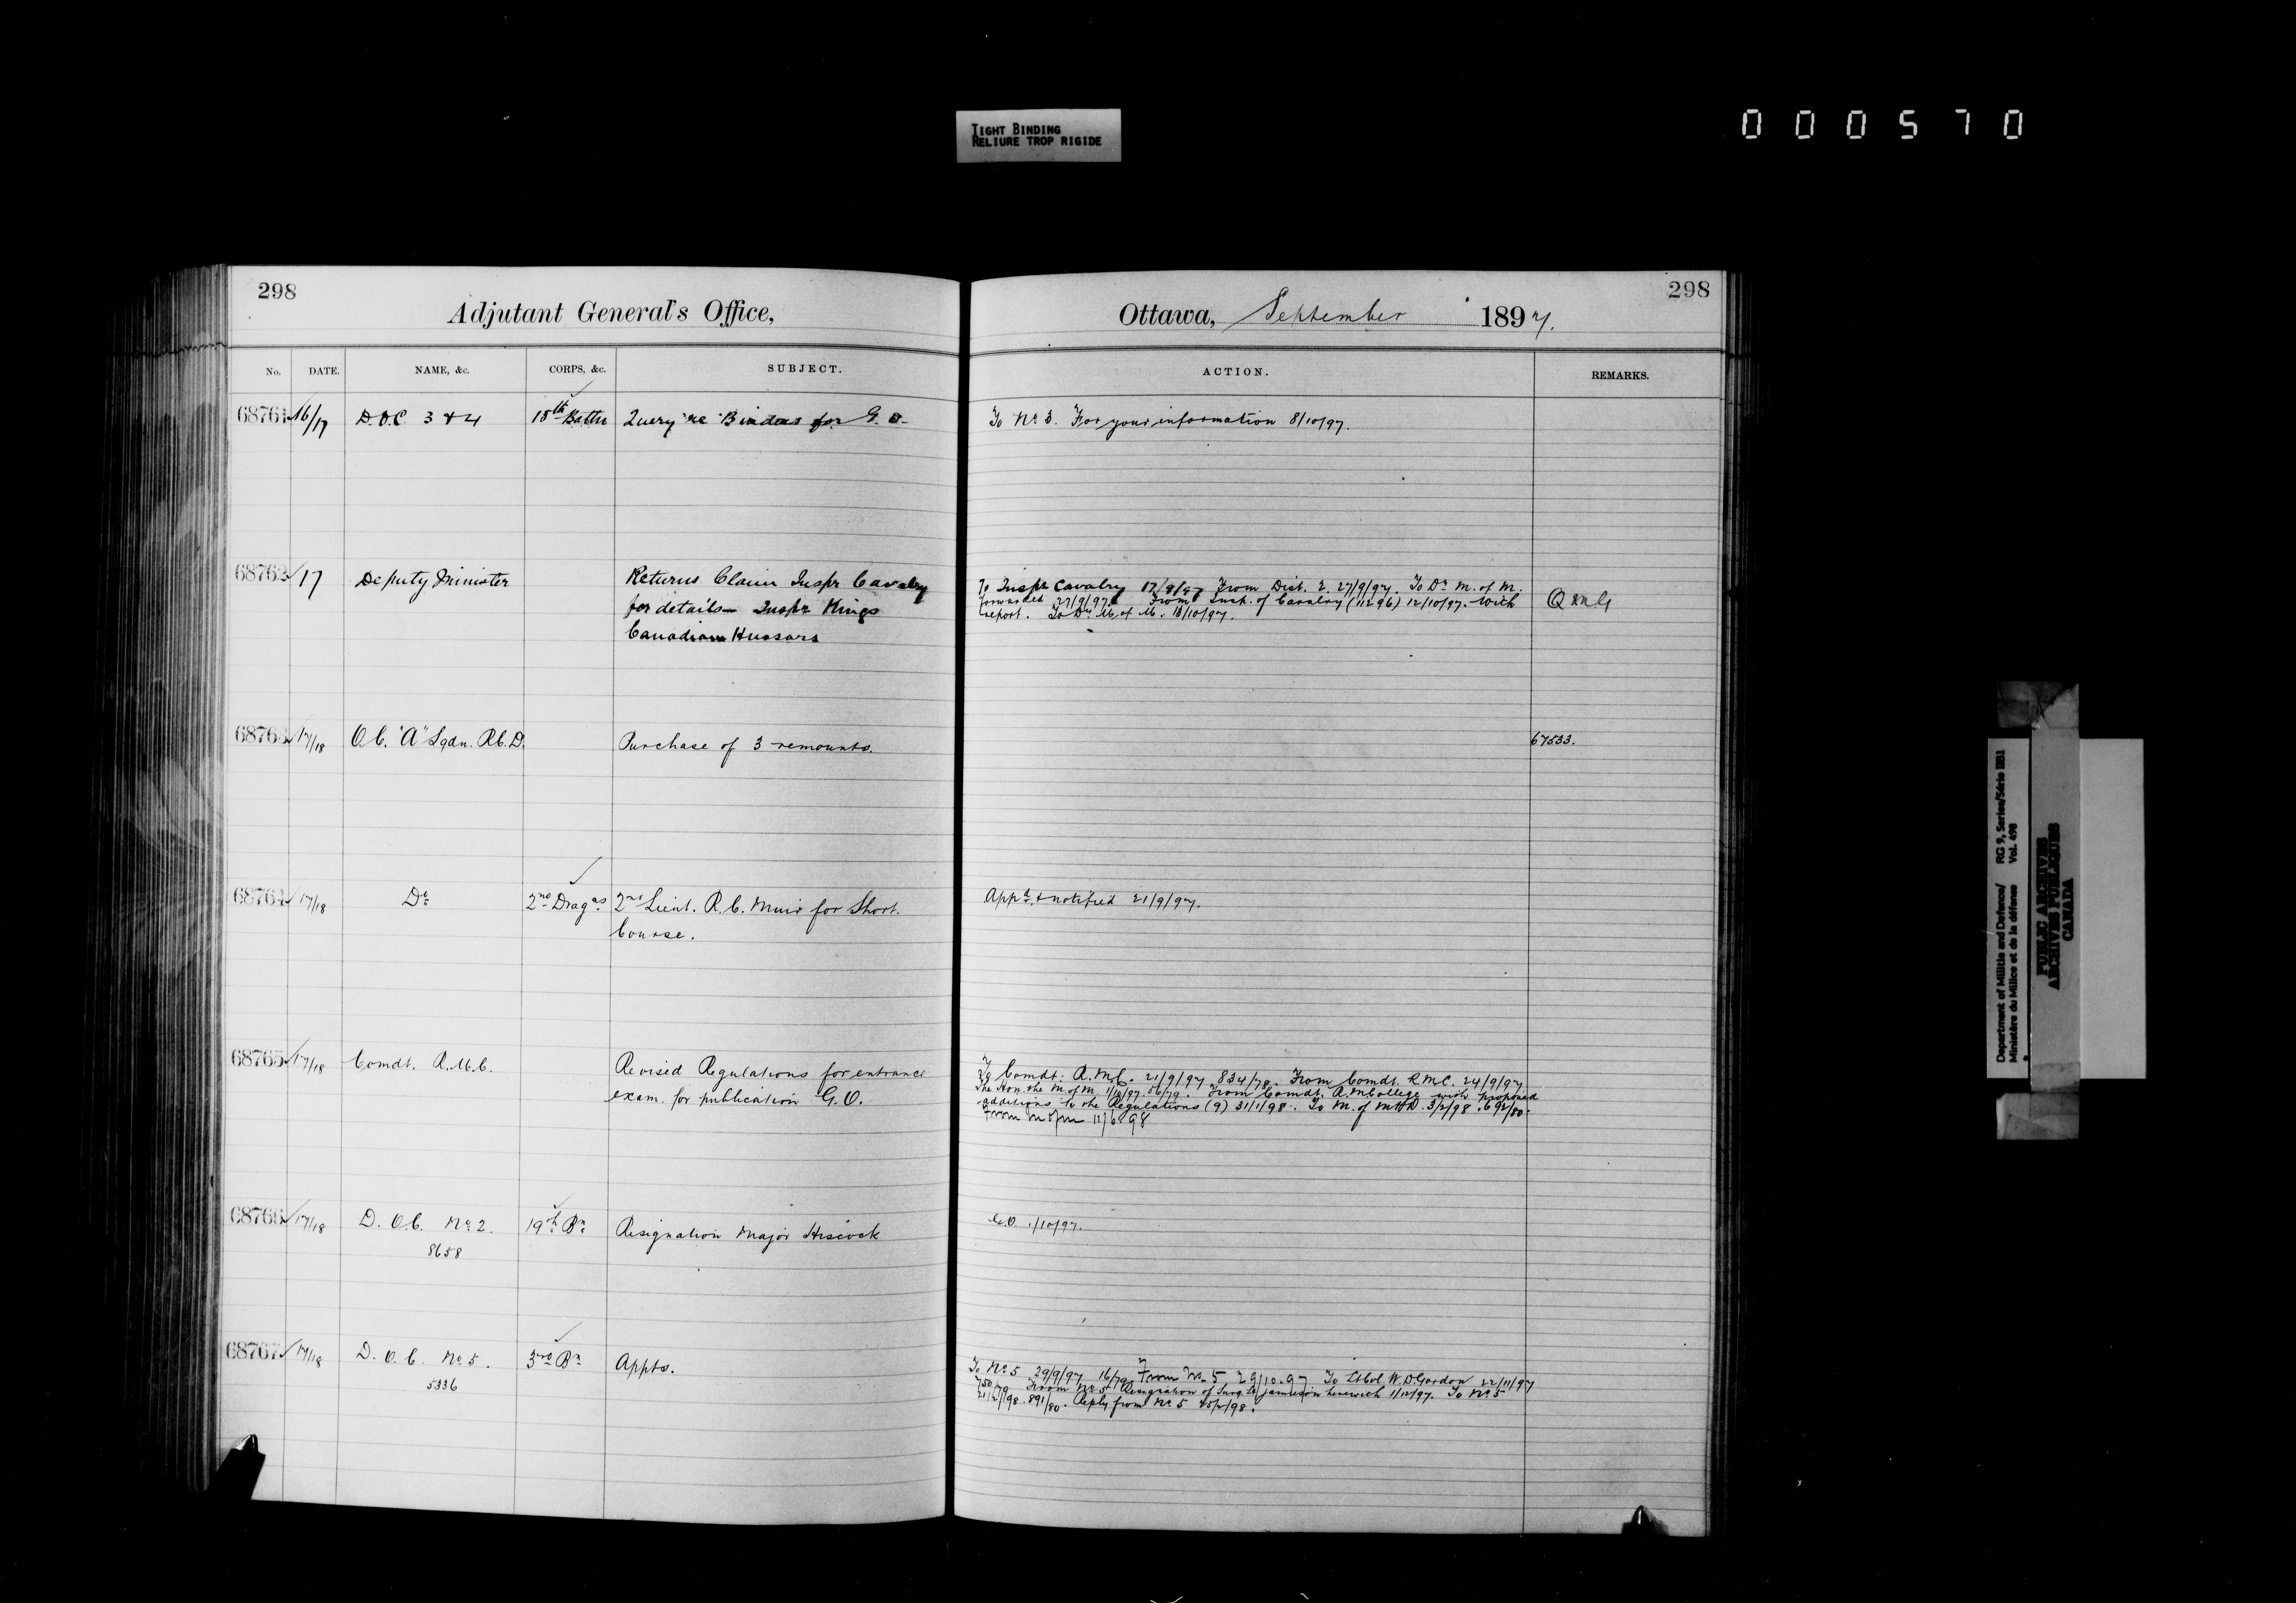 TIGHT BINDING
RELIURE TROP RIGIDE
000570
298
Adjutant General's Office,
No. DATE. NAME, &c. CORPS, &c. SUBJECT.
68761 16/17 D.O.C. 3 & 4 15th Battn Query re Binders for G. O.
68762 17 Deputy Minister Returns Claim Inspr Cavalry
for details Inspr Kings
Canadian Hussars
68763 17/18 O.C. "A" Sqdn. R.C.D. Purchase of 3 remounts.
68764 17/18 Do 2nd Drags 2nd Lieut. R.C. Muir for Short
Course.
68765 17/18 Comdt. R.M.C. Revised Regulations for entrance
exam. for publication G.O.
68766 17/18 D.O.C. No 2. 19th Bn Resignation Major Hiscock
8658
68767 17/18 D.O.C. No 5. 3rd Bn Appts.
5336
298
Ottawa, September 1897.
ACTION. REMARKS.
To No 3. For your information 8/10/97.
To Inspr Cavalry 17/9/97 From Dist. 2. 27/9/97. To Dr M. of M.
forwarded 27/9/97. From Insp. of Cavalry (11296) 12/10/97. with
report. To Dr M. of M. 13/10/97.
QMG
67533.
Appd & notified 21/9/97.
To Comdt. R.M.C. 21/9/97 834/78. From Comdt. R.M.C. 24/9/97
The Hon. the M. of M. 1/10/97. 56/79. From Comdt. R.M.College with proposed
additions to the Regulations (9) 31/1/98. To M. of M & D. 3/2/98. 692/80.
From M of M 11/6 98
G.O. 1/10/97.
To No 5 29/9/97 16/79. From No 5 29/10.97 To Lt Col. W.D. Gordon 22/11/97
750/79 From No 5 Resignation of Surg. Lt Jamieson herewith 1/12/97. To No 5
21/2/98. 891/80. Reply from No 5 25/2/98.
Department of Militia and Defence/ RG 9, Series/Série IIB1
Ministère du Milice et de la défense Vol. 498
PUBLIC ARCHIVES
ARCHIVES PUBLIQUES
CANADA